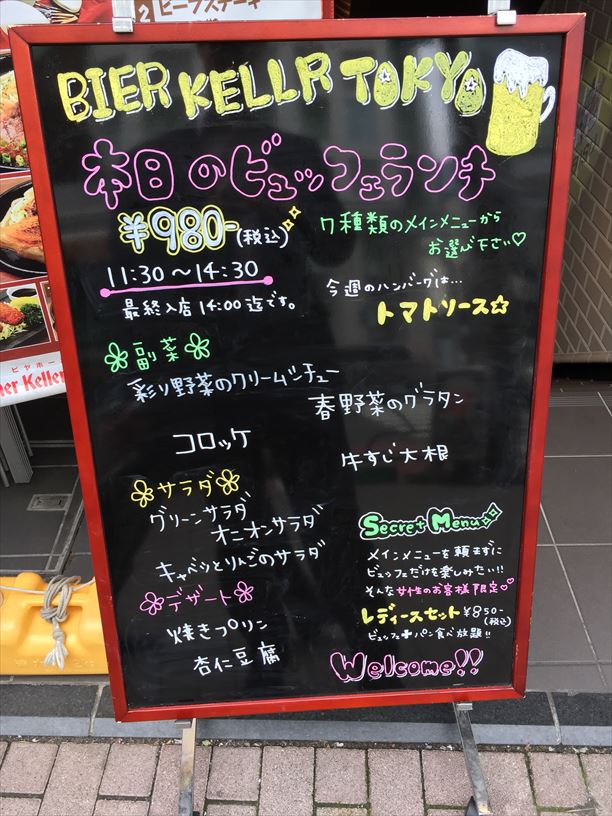 2 ビーフステーキ
BIER KELLR TOKYO
本日のビュッフェランチ
¥980-(税込)
7種類のメインメニューから
お選び下さい♡
11:30〜14:30
最終入店14:00迄です。
今週のハンバーグは…
トマトソース☆
副菜
彩り野菜のクリームシチュー
春野菜のグラタン
コロッケ
牛すじ大根
サラダ
グリーンサラダ
オニオンサラダ
キャベツとりんごのサラダ
デザート
焼きプリン
杏仁豆腐
Secret Menu
メインメニューを頼まずに
ビュッフェだけを楽しみたい!!
そんな女性のお客様限定♡♡
レディースセット ¥850-
(税込)
ビュッフェ+パン食べ放題!!
Welcome!!
ビヤホー
ier Keller